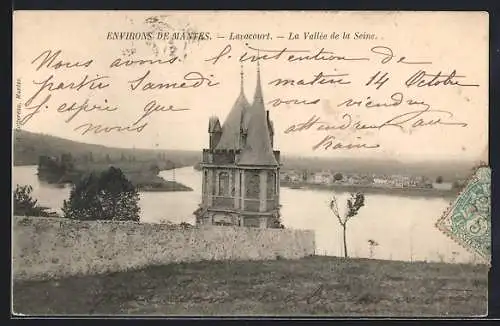 ENVIRONS DE MANTES. - Lavacourt. - La Vallée de la Seine.
Nous avons l'intention de
partir Samedi matin 14 Octobre
j'espère que vous viendrez
nous attendre au
train